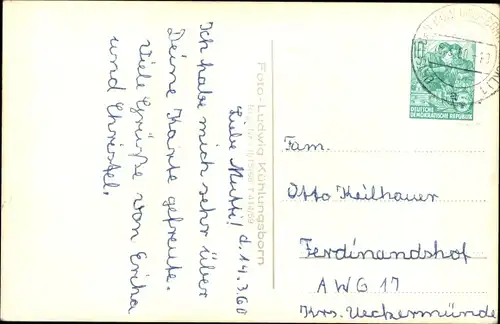 Liebe Mutti! d. 14.3.60
Ich habe mich sehr über
Deine Karte gefreut.
Viele Grüße von Erika
und Christel.
Foto-Ludwig Kühlungsborn
10
DEUTSCHE
DEMOKRATISCHE REPUBLIK
Fam.
Otto Keilhauer
Ferdinandshof
AWG 17
Krs. Ueckermünde